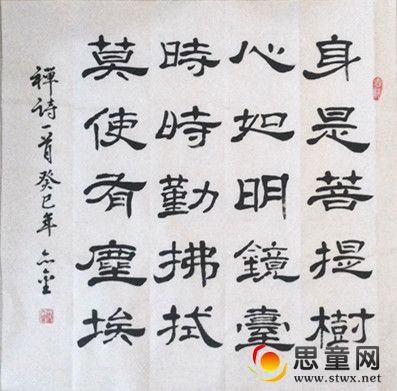 身是菩提樹
心如明鏡臺
時時勤拂拭
莫使有塵埃
禪詩一首癸巳年
思童网
www.stwx.net